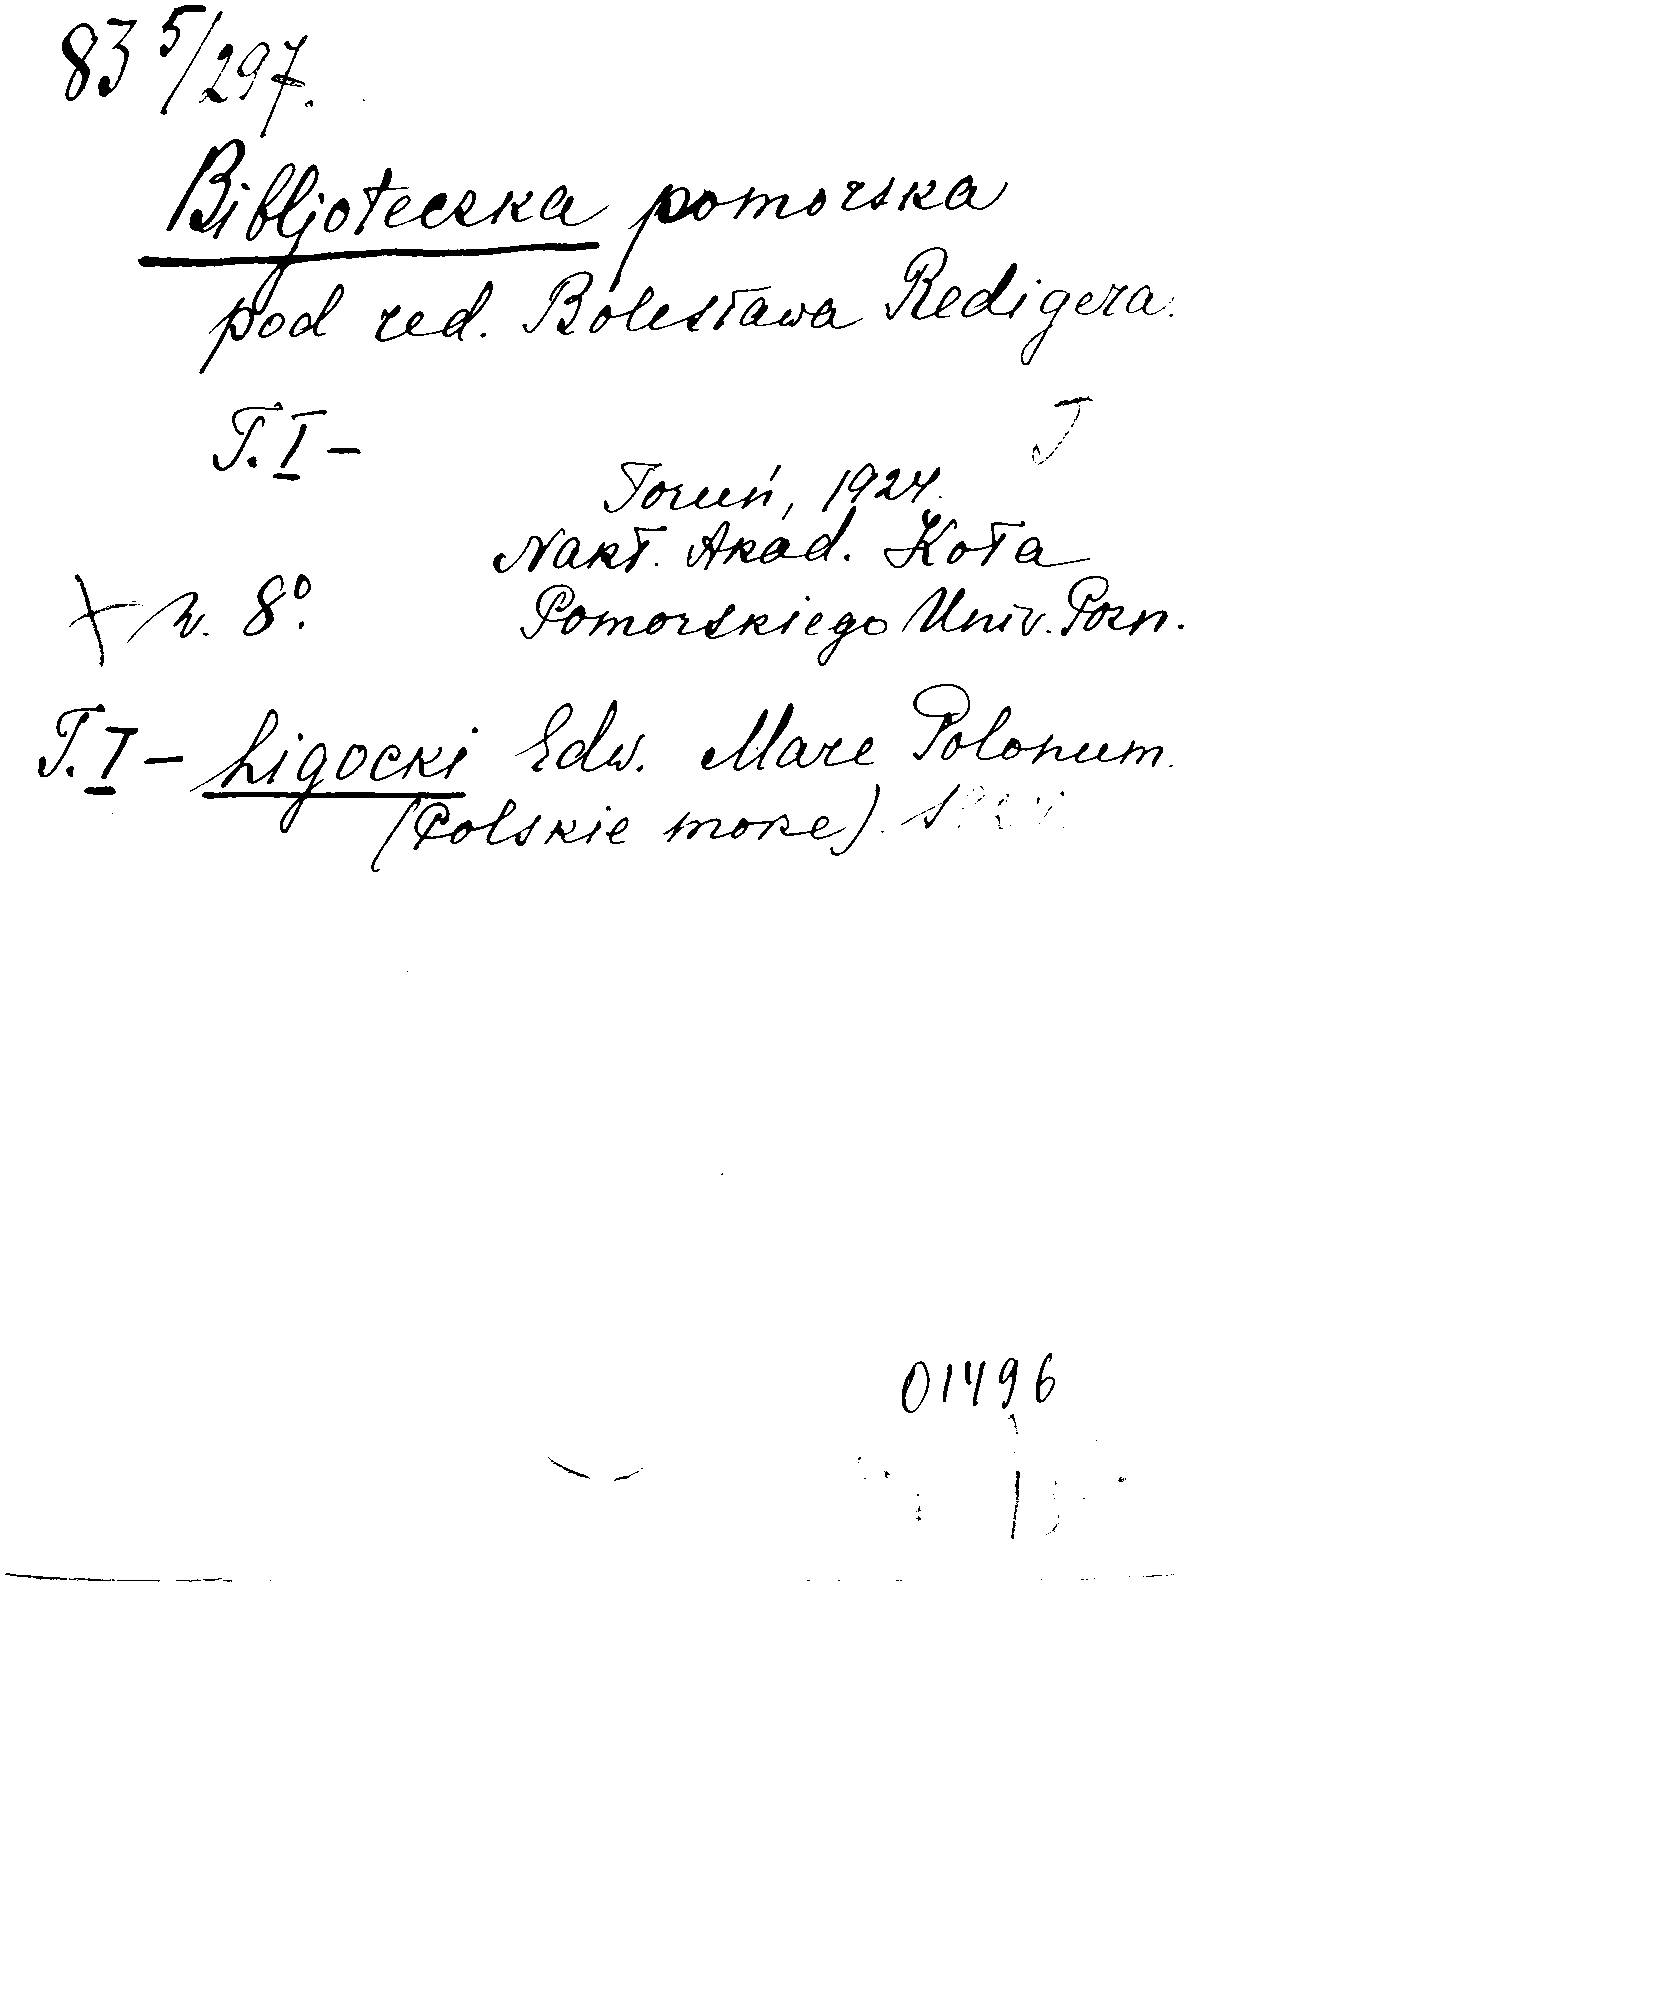 83 5/297.
Bibljoteczka pomorska
pod red. Bolesława Redigera.
T. I –
Toruń, 1924.
Nakł. Akad. Koła
+ w. 8°.
Pomorskiego Univ. Pozn.
T. I – Ligocki Edw. Mare Polonum.
(Polskie morze).
01496